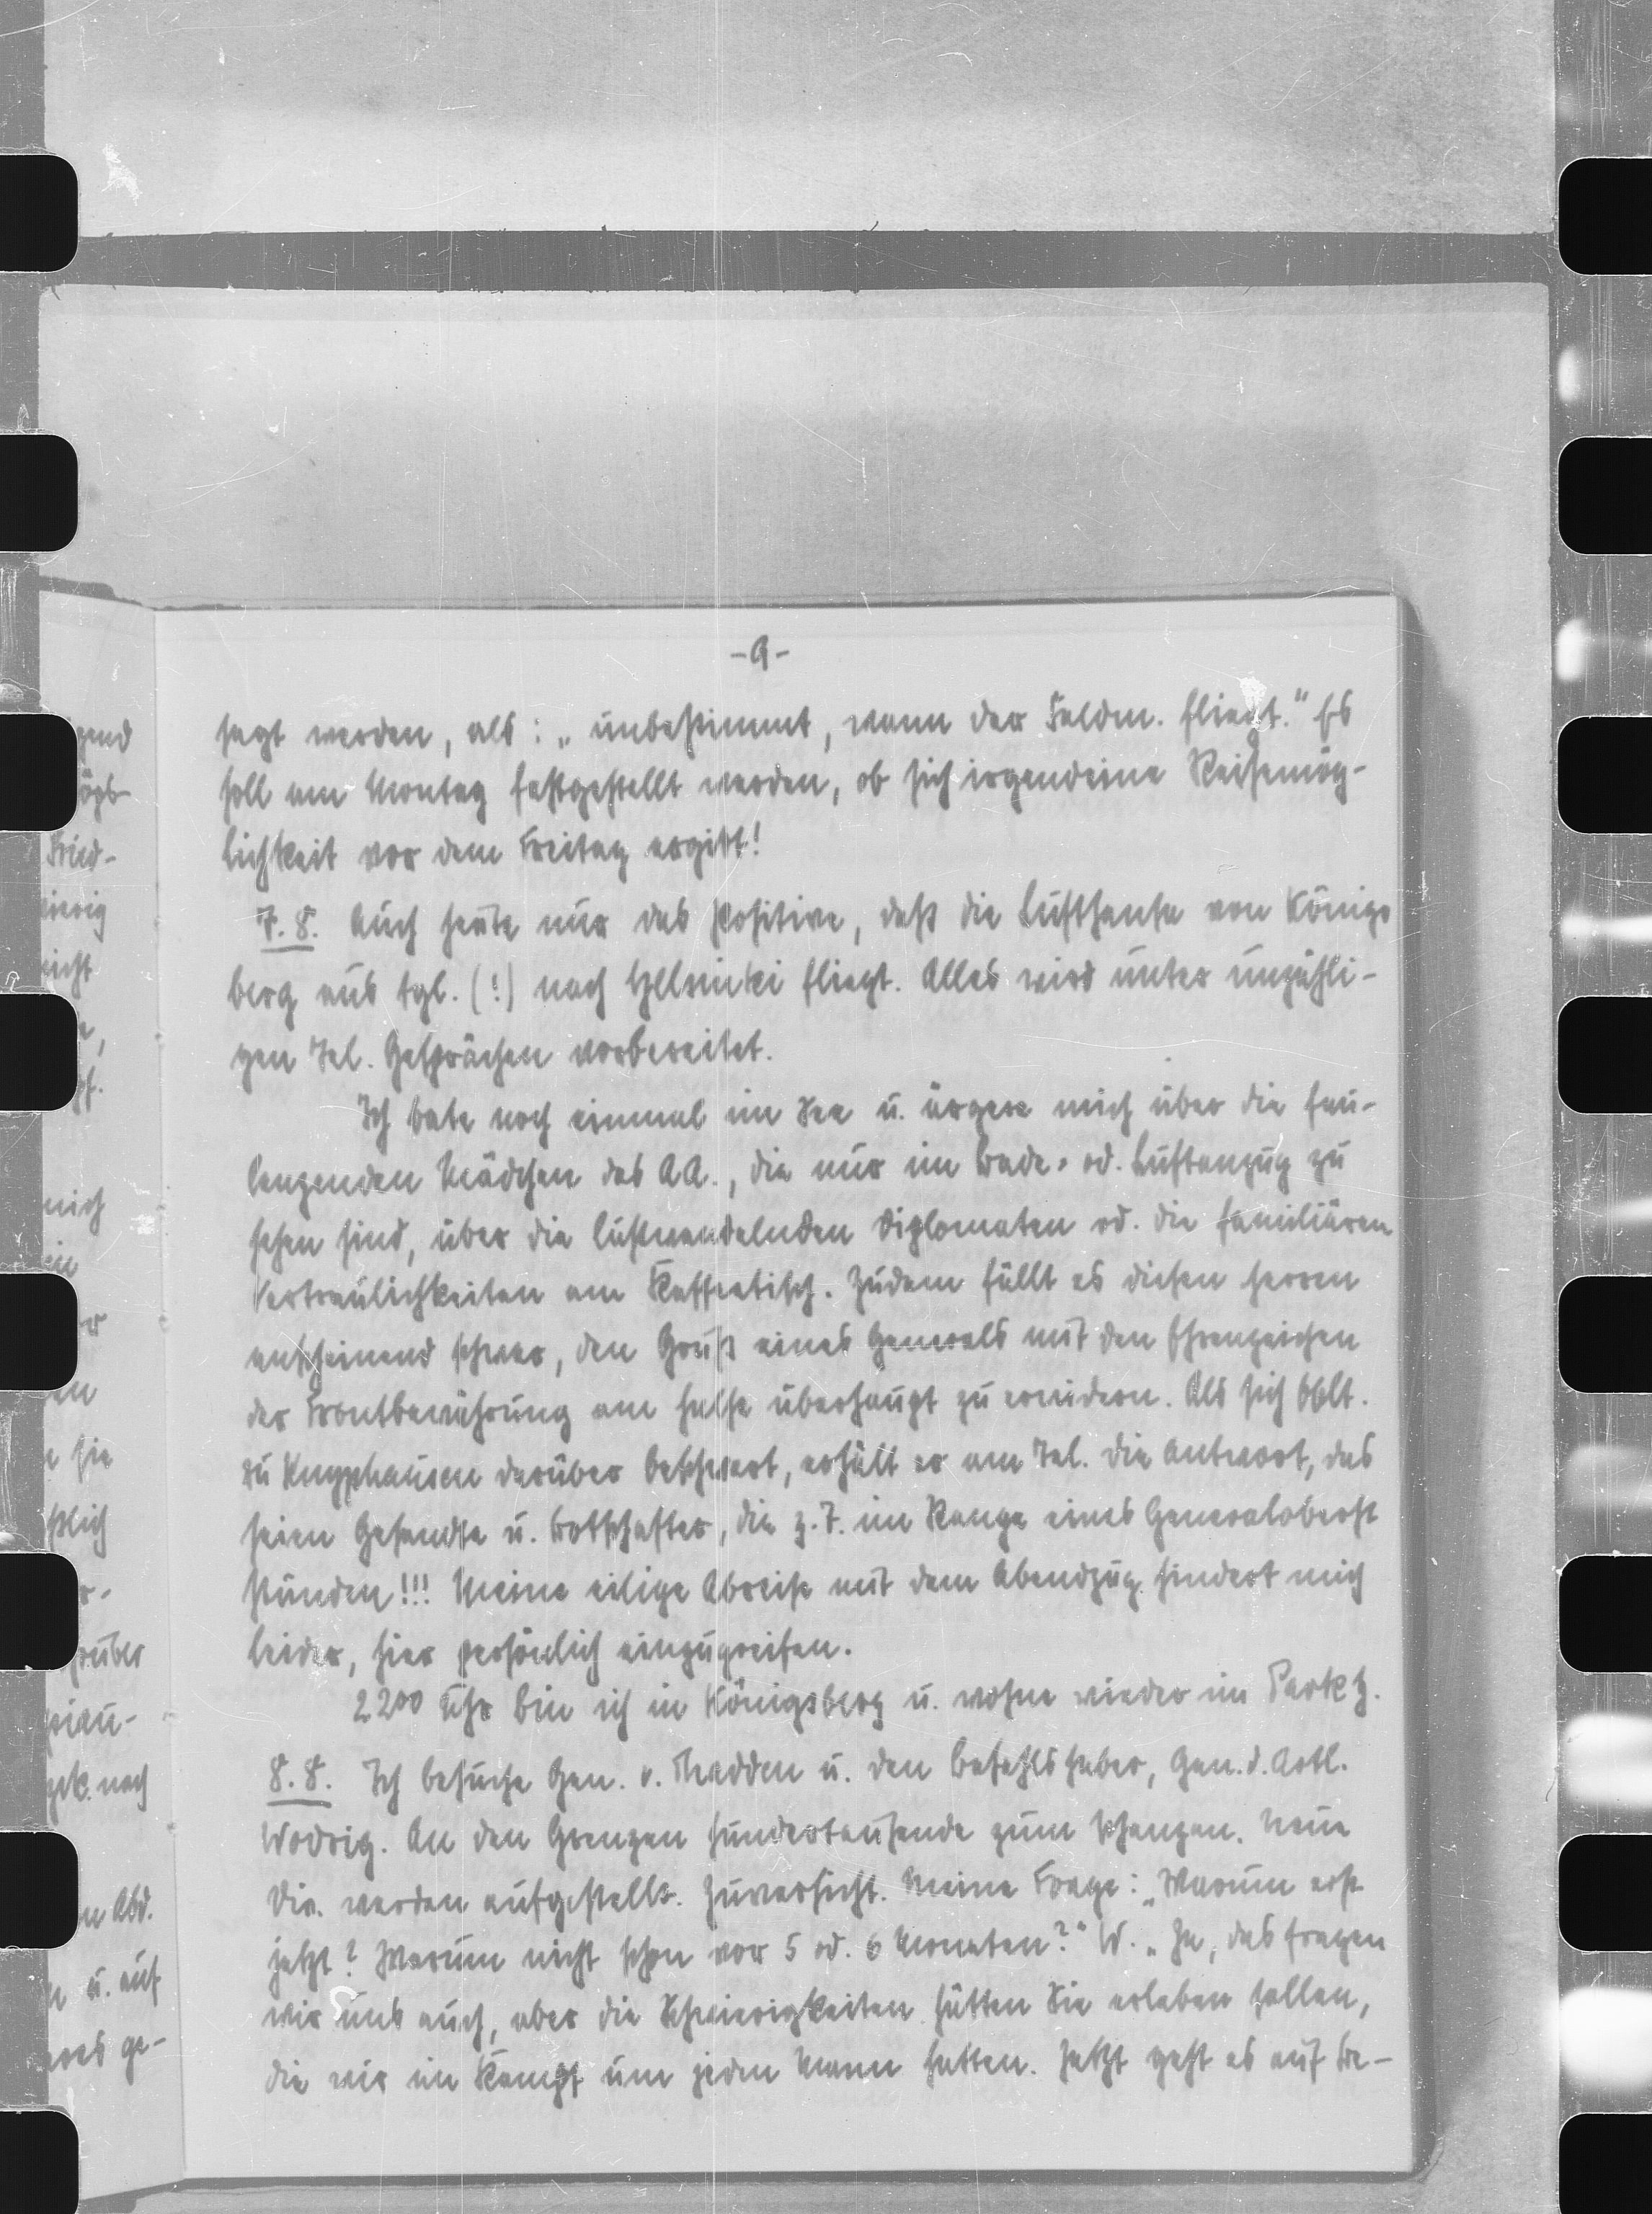 -9-
sagt werden, als: „unbestimmt, wann der Feldm. fliegt.“ Es
soll am Montag festgestellt werden, ob sich irgendeine Reisemög-
lichkeit vor dem Freitag ergibt!
7.8. Auch heute nur das Positive, daß die Lufthansa von Königs
berg aus tgl. (!) nach Helsinki fliegt. Alles wird unter unzähli-
gen Tel. Gesprächen vorbereitet.
Ich bade noch einmal im See u. ärgere mich über die fau-
lenzenden Mädchen des AA., die nur im Bade- od. Luftanzug zu
sehen sind, über die lustwandelnden Diplomaten od. die familiären
Vertraulichkeiten am Kaffeetisch. Zudem fällt es diesen Herren
anscheinend schwer, den Gruß eines Generals mit den Ehrenzeichen
der Frontbewährung am Halse überhaupt zu erwidern. Als sich Oblt.
zu Knyphausen darüber beschwert, erhält er am Tel. die Antwort, das
seien Gesandte u. Botschafter, die z.T. im Range eines Generaloberst
stünden!!! Meine eilige Abreise mit dem Abendzug hindert mich
leider, hier persönlich einzugreifen.
2200 Uhr bin ich in Königsberg u. wohne wieder im Park h.
8.8. Ich besuche Gen. v. Thadden u. den Befehlshaber, Gen. d. Artl.
Wodrig. An den Grenzen hunderttausende zum Schanzen. Neue
Div. werden aufgestellt. Zuversicht. Meine Frage: „Warum erst
jetzt? Warum nicht schon vor 5 od. 6 Monaten?“ W. „Ja, das fragen
wir uns auch, aber die Schwierigkeiten hätten Sie erleben sollen,
die wir im Kampf um jeden Mann hatten. Jetzt geht es auf Be-